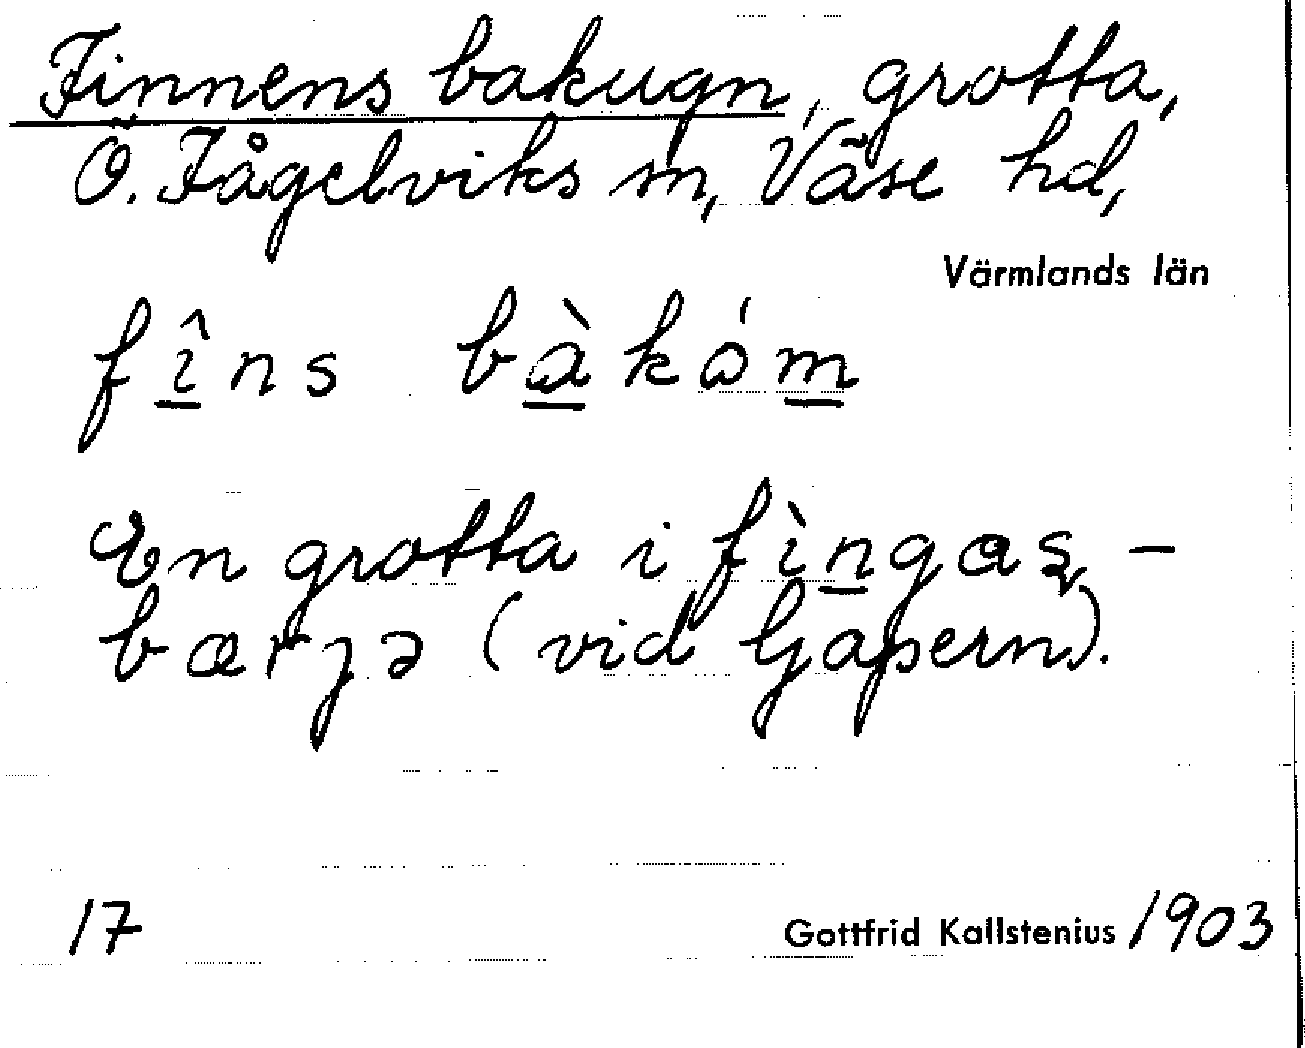 Finnens bakugn, grotta,
Ö. Fågelviks sn, Väse hd,
Värmlands län
fîns bàkóm
En grotta i fìngas̨-
bærjə (vid Gapern).
17
Gottfrid Kallstenius 1903